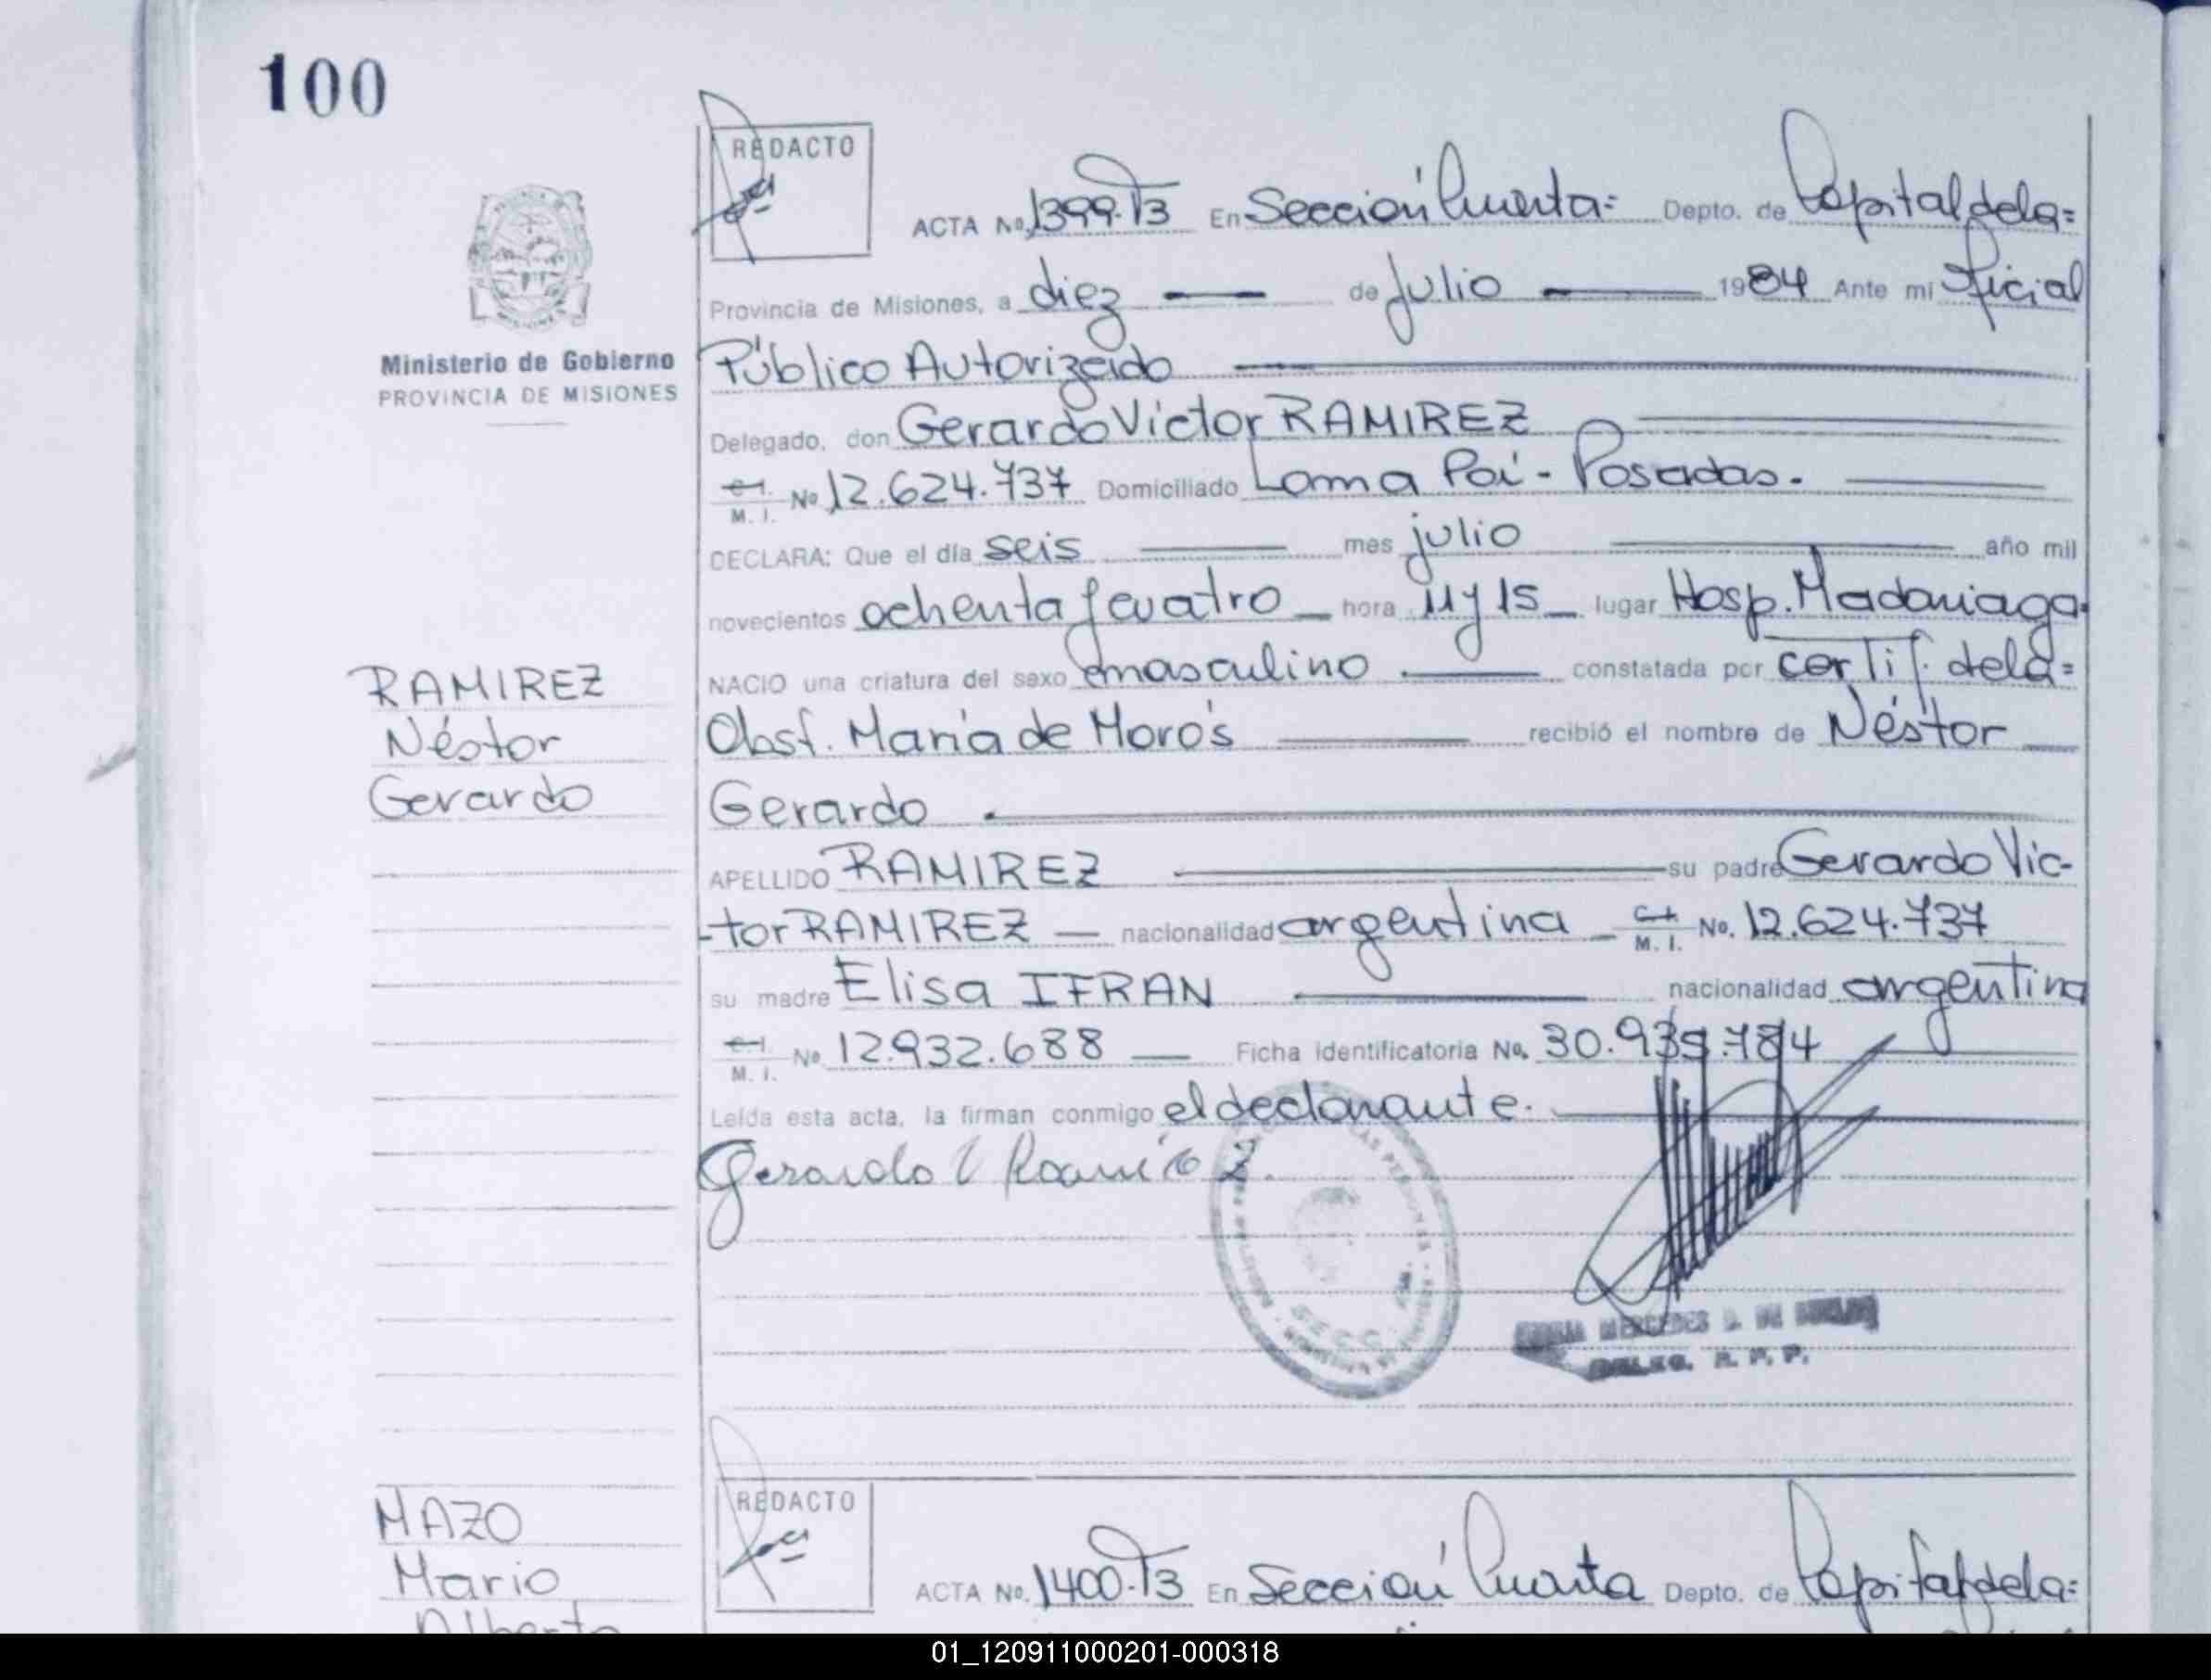 100
REDACTO
ACTA No. 1399.T3 En Sección Cuarta= Depto. de Capital de la=
Provincia de Misiones, a diez — de julio — 1984 Ante mi Oficial
Ministerio de Gobierno
PROVINCIA DE MISIONES
Público Autorizado
Delegado, don Gerardo Victor RAMIREZ
C.I. M. I. No 12.624.737 Domiciliado Loma Poi - Posadas.
DECLARA: Que el día seis — mes julio — año mil
novecientos ochenta y cuatro — hora 11 y 15 — lugar Hosp. Madariaga.
NACIO una criatura del sexo masculino — constatada por certif. de la=
RAMIREZ
Néstor
Gerardo
Obst. María de Morós — recibió el nombre de Néstor —
Gerardo
APELLIDO RAMIREZ — su padre Gerardo Vic-
-tor RAMIREZ — nacionalidad argentina — C.I. M. I. No. 12.624.737
su madre Elisa IFRAN — nacionalidad argentina
C.I. M. I. No 12.932.688 — Ficha identificatoria No. 30.939.784
Leída esta acta, la firman conmigo el declarante.
Gerardo V Ramirez.
SECC.
MERCEDES
DELEG. R. P. P.
MAZO
Mario
Alberto
REDACTO
ACTA No. 1400.T3 En Sección Cuarta Depto. de Capital de la=
01_120911000201-000318